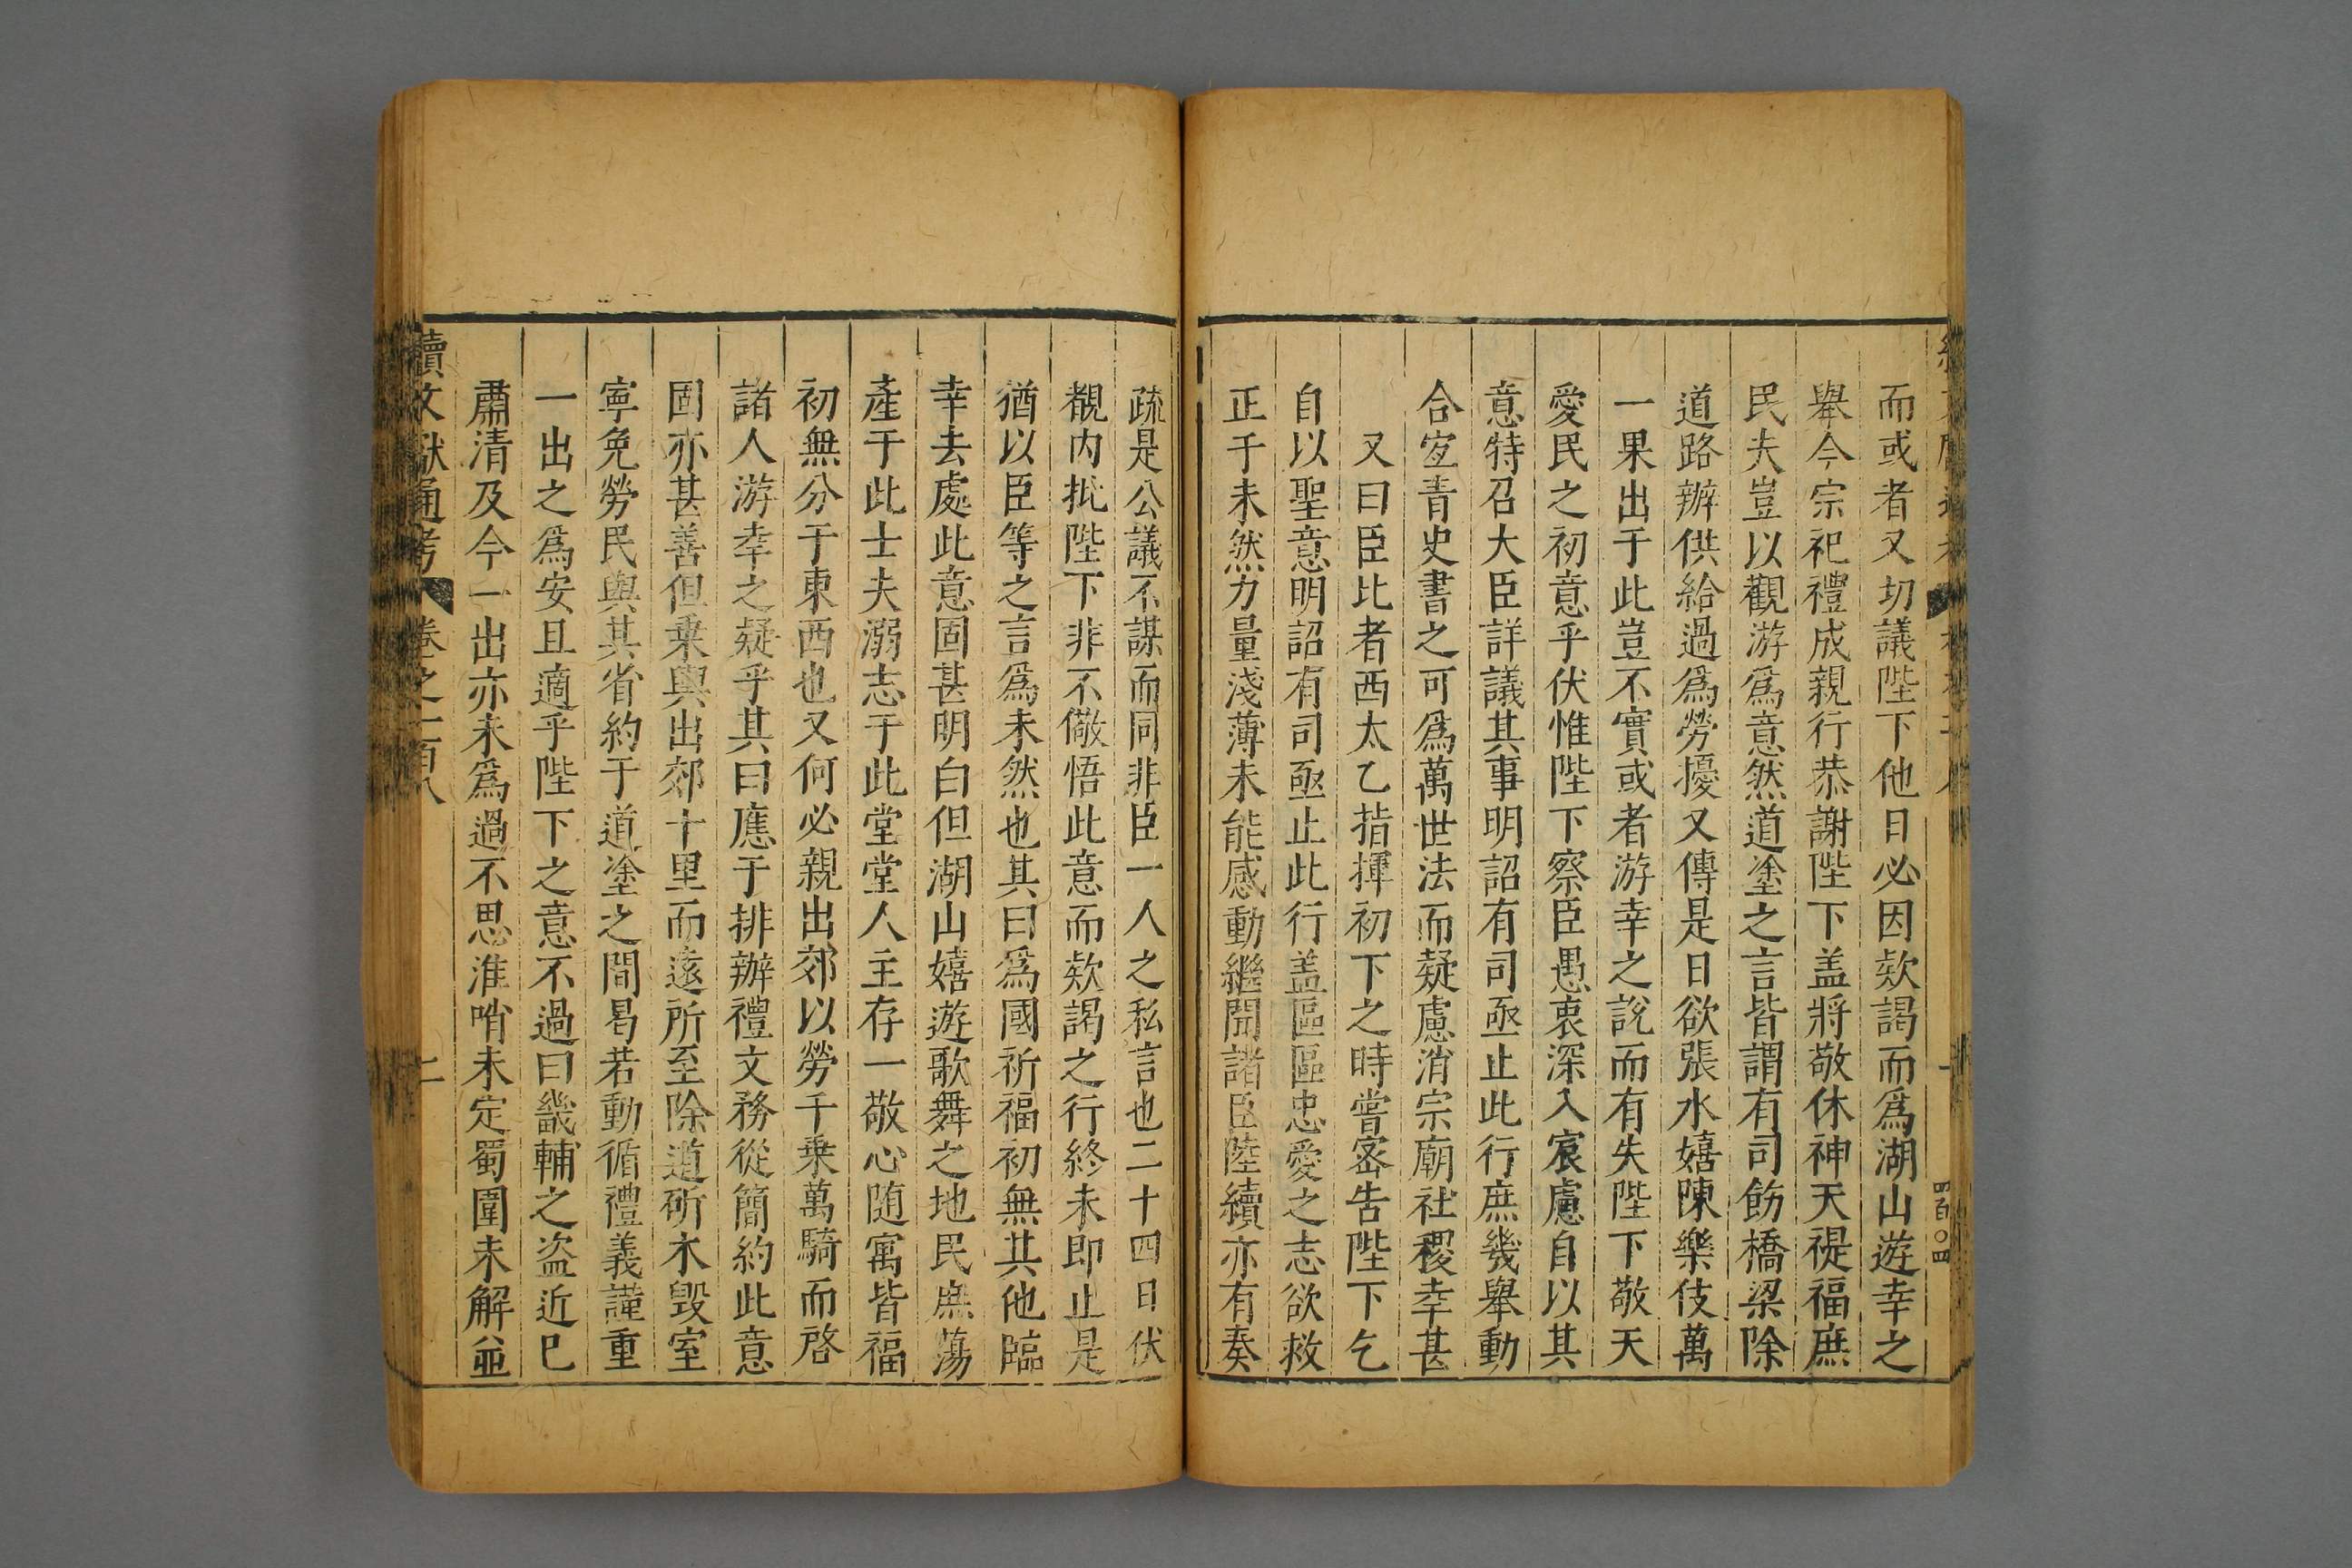 而或者又切議陛下他日必因欵謁而爲湖山遊幸之
舉今宗祀禮成親行恭謝陛下盖將敬休神天禔福庶
民夫豈以觀游爲意然道塗之言皆謂有司飭橋梁除
道路辦供給過爲勞擾又傳是日欲張水嬉陳樂伎萬
一果出于此豈不實或者游幸之說而有失陛下敬天
愛民之初意乎伏惟陛下察臣愚衷深入宸慮自以其
意特召大臣詳議其事明詔有司亟止此行庶幾舉動
合宐青史書之可爲萬世法而疑慮消宗廟社稷幸甚
又曰臣比者西太乙指揮初下之時嘗宻告陛下乞
自以聖意明詔有司亟止此行盖區區忠愛之志欲救
正于未然力量淺薄未能感動繼聞諸臣陸續亦有奏
疏是公議不謀而同非臣一人之私言也二十四日伏
覩内批陛下非不儆悟此意而欵謁之行終未即止是
猶以臣等之言爲未然也其曰爲國祈福初無其他臨
幸去處此意固甚明白但湖山嬉遊歌舞之地民庶蕩
產于此士夫溺志于此堂堂人主存一敬心随寓皆福
初無分于東西也又何必親出郊以勞千乗萬騎而啓
諸人游幸之疑乎其曰應于排辦禮文務從簡約此意
固亦甚善但乗輿出郊十里而遠所至除道斫木毀室
寧免勞民與其省約于道塗之間曷若動循禮義謹重
一出之爲安且適乎陛下之意不過曰畿輔之盗近巳
肅清及今一出亦未爲過不思淮哨未定蜀圍未解並
續文獻通考 卷之一百八 二
四百〇四